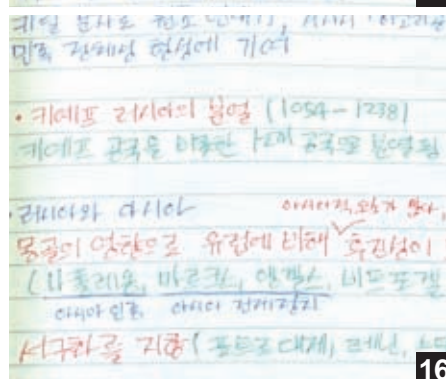 민족 정체성 형성에 기여
• 키에프 러시아의 분열 (1054-1238)
키에프 공국을 비롯한 12개 공국으로 분열됨
· 러시아와 아시아
아시아적 요소가 많다.
몽골의 영향으로 유럽에 비해 후진성이
(나폴레옹, 마르크스, 엥겔스, 비트포겔
아시아 인종 아시아 전제정치
서구화를 지향 (표트르 대제, 레닌,
16